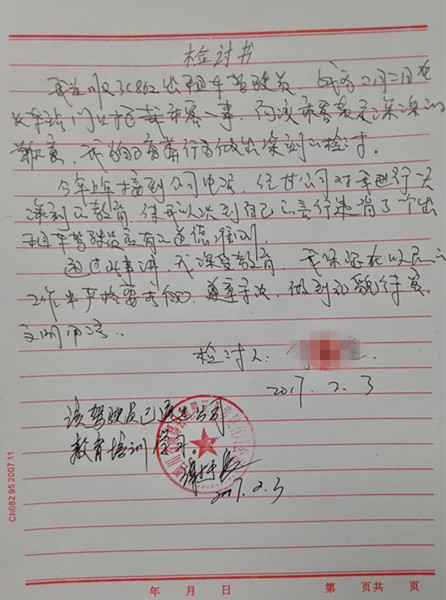 检讨书
我是川Q3C862出租车驾驶员，我于二月二日在
火车站门口拒载乘客一事，向该乘客表示深深的
歉意，我的自身行为做出深刻的检讨。
今年上午接到公司电话，经过公司对我进行一次
深刻的教育，使我认识到自己的言行违背了个出
租车驾驶员应有的道德准则
通过此事讲，我深受教育，我保证在以后的
工作中严格要求自己，遵章守法，做到礼貌待客，
文明用语。
检讨人：
2017.2.3
该驾驶员已通过公司
教育培训
2017.2.3
Ch082 95 2007 11
年 月 日
第 页共 页